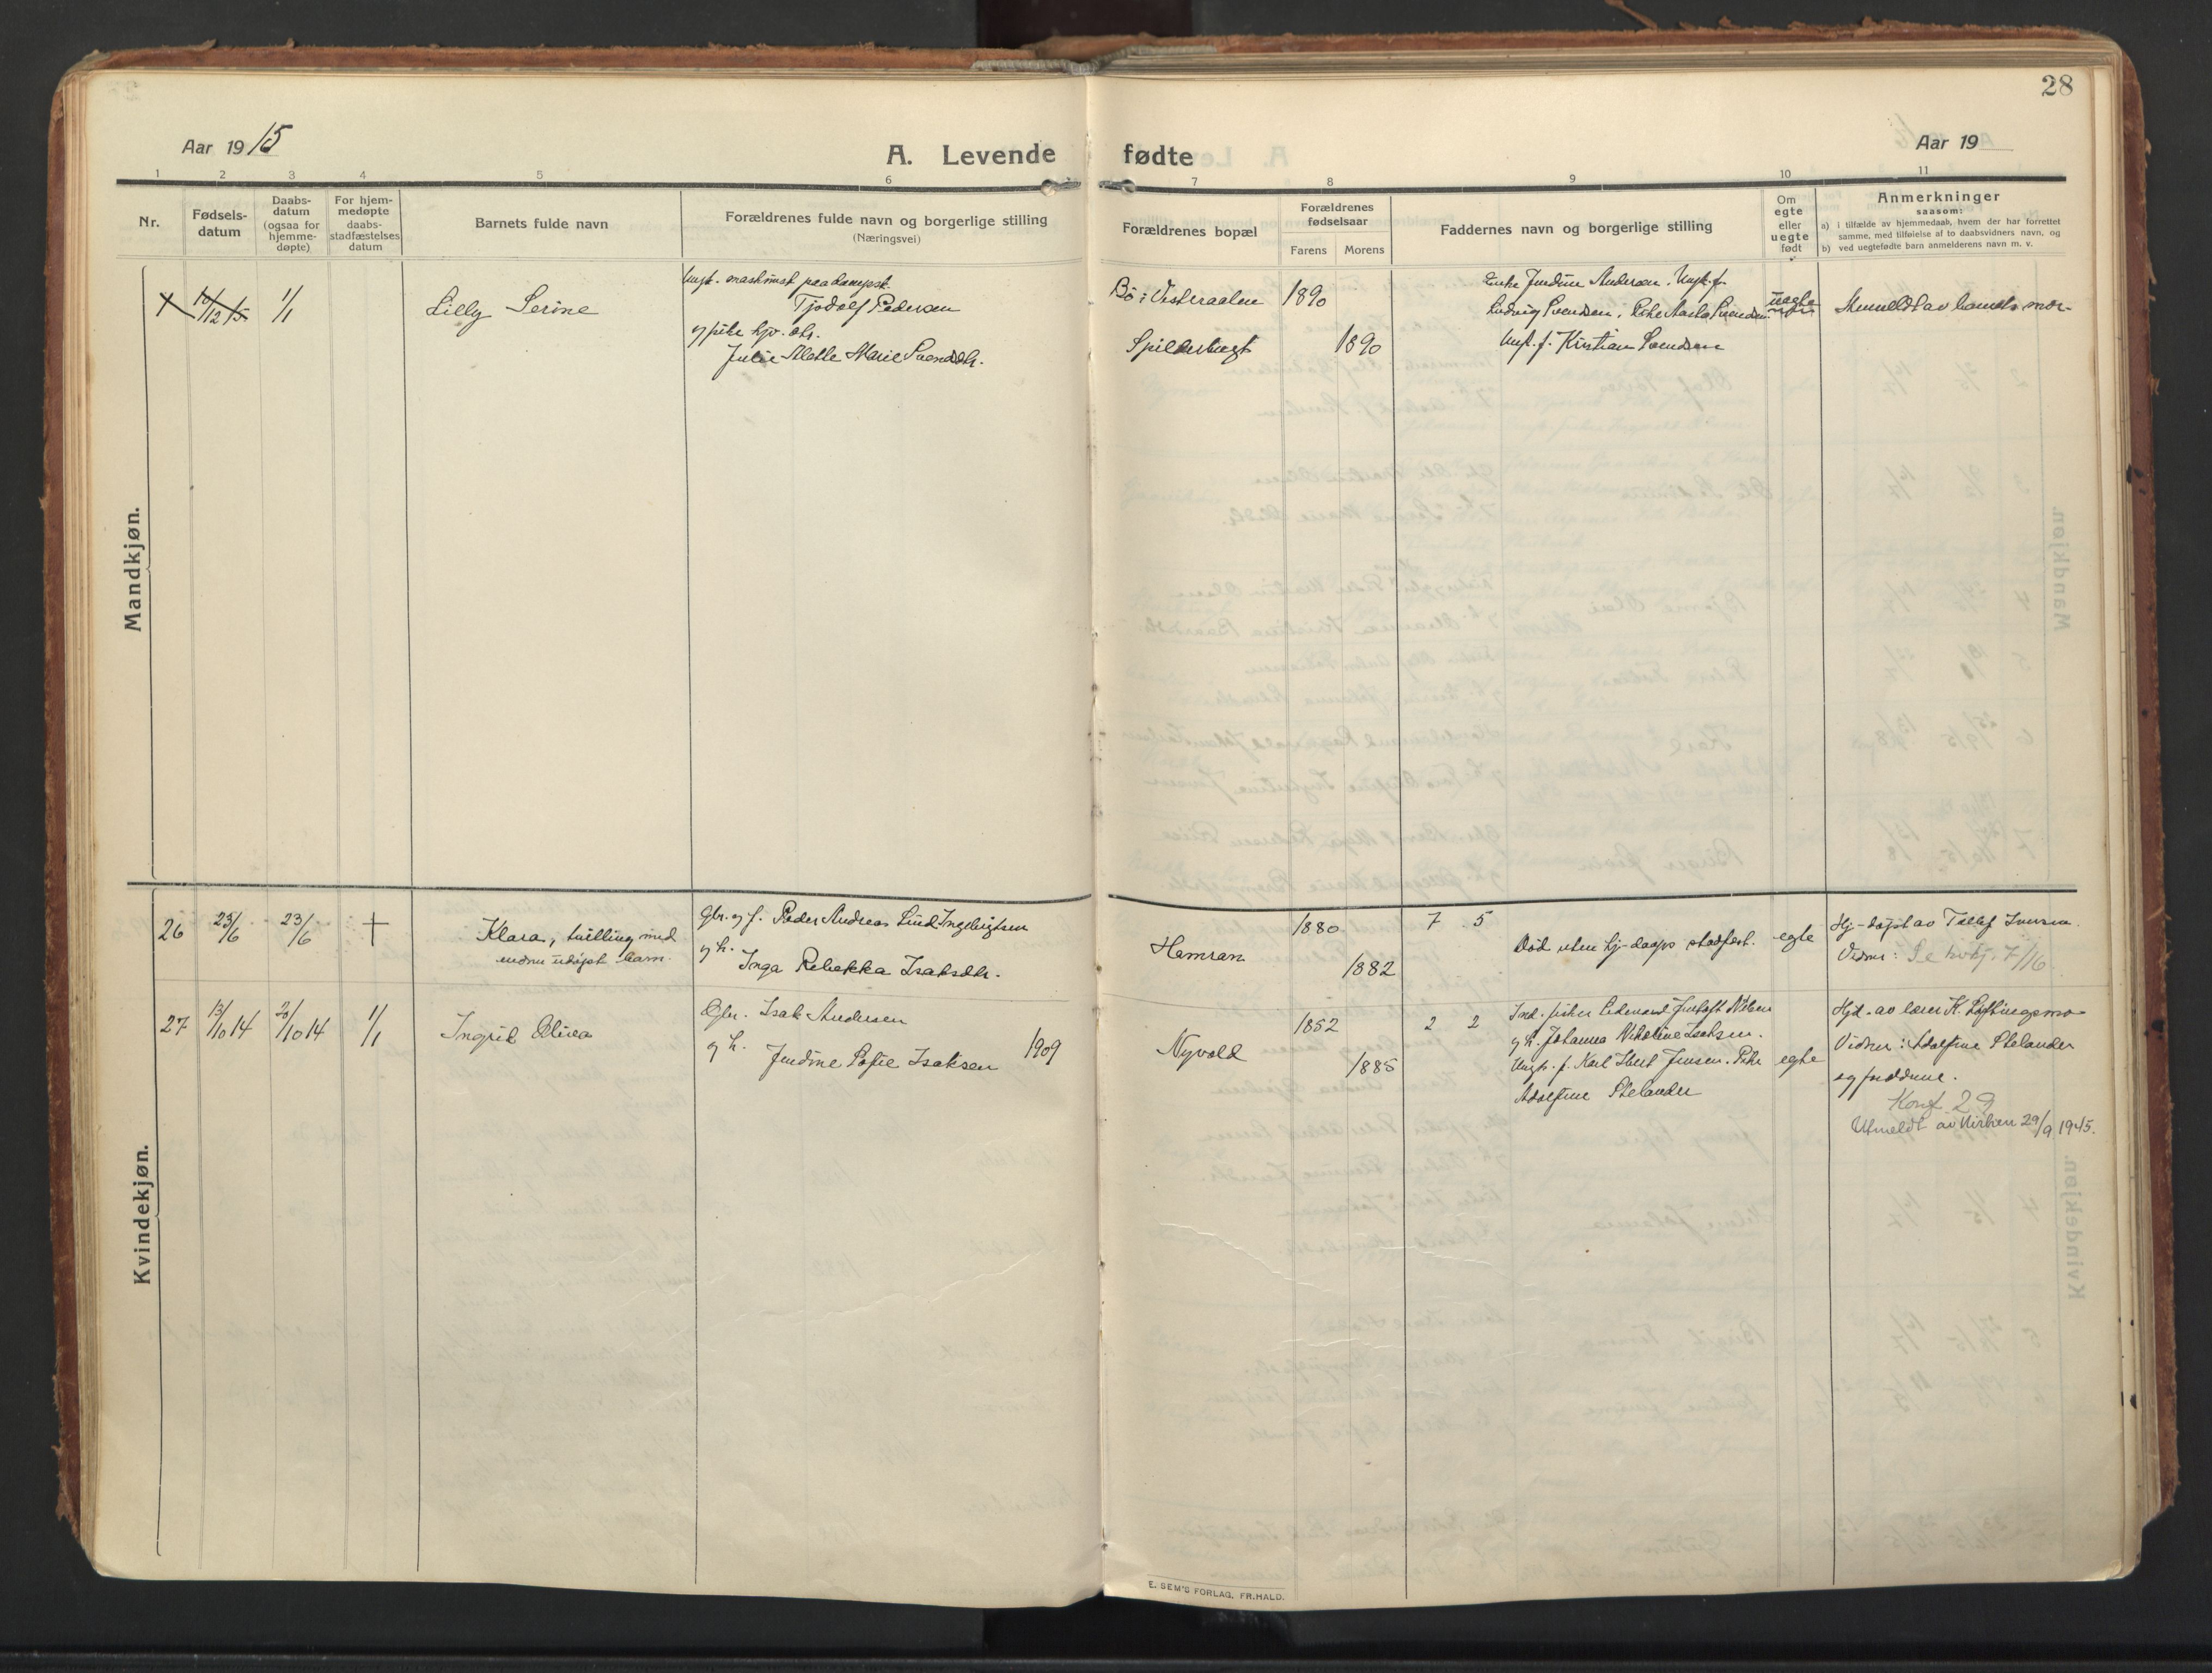 28
Aar 1915
A. Levende fødte
Aar 19
1 2 3 4 5 6 7 8 9 10 11
Nr.
Fødsels-
datum
Daabs-
datum
(ogsaa for
hjemme-
døpte)
For hjem-
medøpte
daabs-
stadfæstelses
datum
Barnets fulde navn
Forældrenes fulde navn og borgerlige stilling
(Næringsvei)
Forældrenes bopæl
Forældrenes
fødselsaar
Farens Morens
Faddernes navn og borgerlige stilling
Om
egte
eller
uegte
født
Anmerkninger
saasom:
a) i tilfælde av hjemmedaab, hvem der har forrettet
samme, med tilføielse af to daabsvidners navn, og
b) ved uegtefødte barn anmelderens navn m. v.
Mandkjøn.
10/12 15 1/1 Lilly Serine
Ungk. maskinist paa dampsk.
Tjodolf Pedersen
og pike hjv. dtr.
Julie Alette Marie Svendsdtr.
Bø i Vesteraalen 1890
Spilderbugt 1890
Enke Jendine Andersen. Ungk. f.
Ludvig Svendsen. Pike Aasta Svendsen.
Ungk. f. Kristian Svendsen
uegte
Anmeldt av barnets mor
Kvindekjøn.
26 23/6 23/6 †
Klara, tvilling med
endnu udøpt barn.
Gbr. og f. Peder Andreas Lind Ingebrigtsen
og h.
Inga Rebekka Isaksdtr.
Hamran 1880 1882
7 5
Død uten hj-daaps stadfest. egte
Hj-døpt av Tollef Iversen.
Vidner: Se 7/16
27 13/10 14 20/10 14 1/1
Ingrid Olivia
Gbr. Isak Andersen
og h.
Jendine Sofie Isaksen 1909
Nyvold 1852 1885
2 2
Ind. fisker Edevard Gustaft Nilsen
og h. Johanna Nikoline Isaksen.
Ungk. f. Karl Ibert Jensen. Pike
Adolfine Stelander
egte
Hjd. av lærer K. Løftingsmo
Vidner: Adolfine Stelander
og fædrene.
Konf 29
Utmeldt av kirken 29/9 1945.
E. SEM'S FORLAG, FR.HALD.